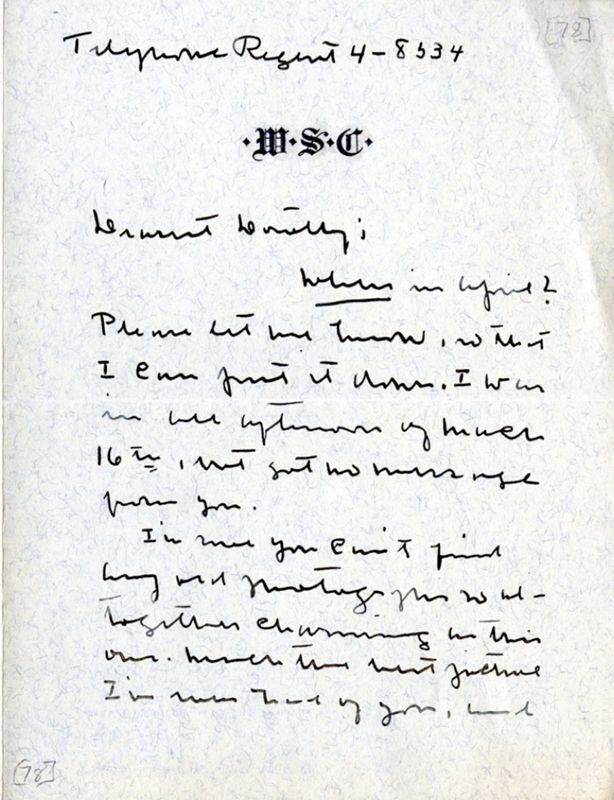 [78]
Telephone Regent 4-8534
·W·S·C·
Dearest Dorothy;
When in April?
Please let me know, so that
I can put it down. I was
in all afternoon of March
16th, but got no message
from you.
I'm sure you can't find
any old photographs so al-
together charming as this
one. Much the best picture
I've ever had of you, and
[78]